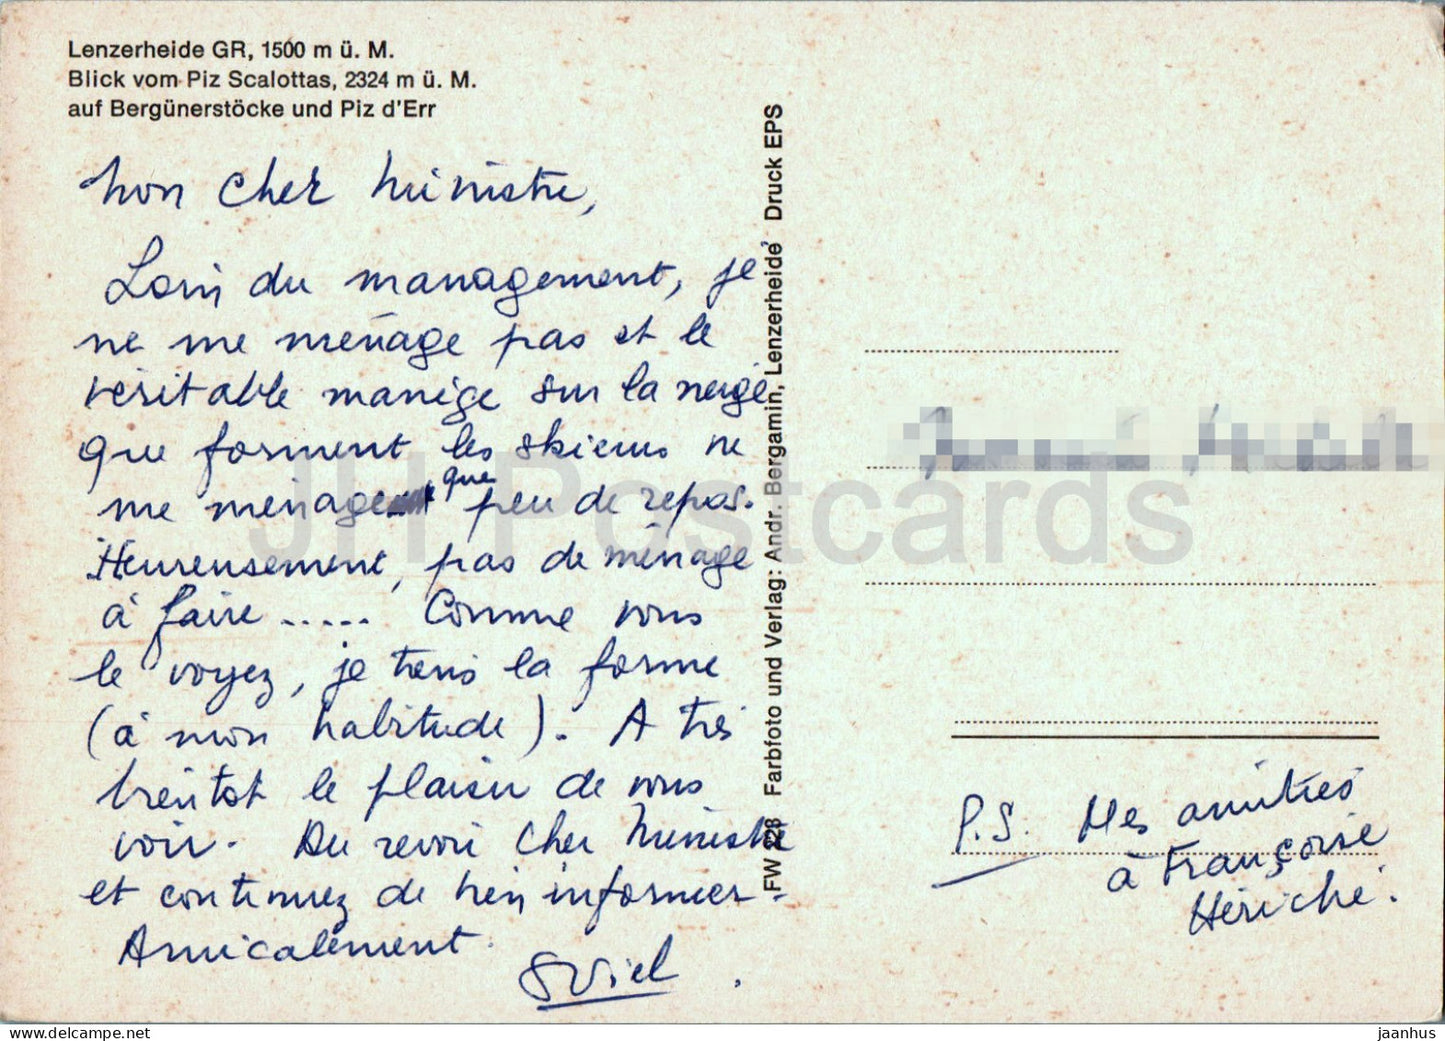 Lenzerheide GR, 1500 m ü. M.
Blick vom Piz Scalottas, 2324 m ü. M.
auf Bergünerstöcke und Piz d'Err
Mon cher Ministre,
Loin du management, je
ne me ménage pas et le
véritable manège sur la neige
que forment les skieurs ne
me ménage que peu de repos.
Heureusement, pas de ménage
à faire ..... Comme vous
le voyez, je tiens la forme
(à mon habitude). A très
bientôt le plaisir de vous
voir. Au revoir Cher Ministre
et continuez de bien informer.
Amicalement.
Viel
FW 228 Farbfoto und Verlag: Andr. Bergamin, Lenzerheide Druck EPS
P.S. Mes amitiés
à Françoise
Hériché.
JH Postcards
www.delcampe.net
jaanhus